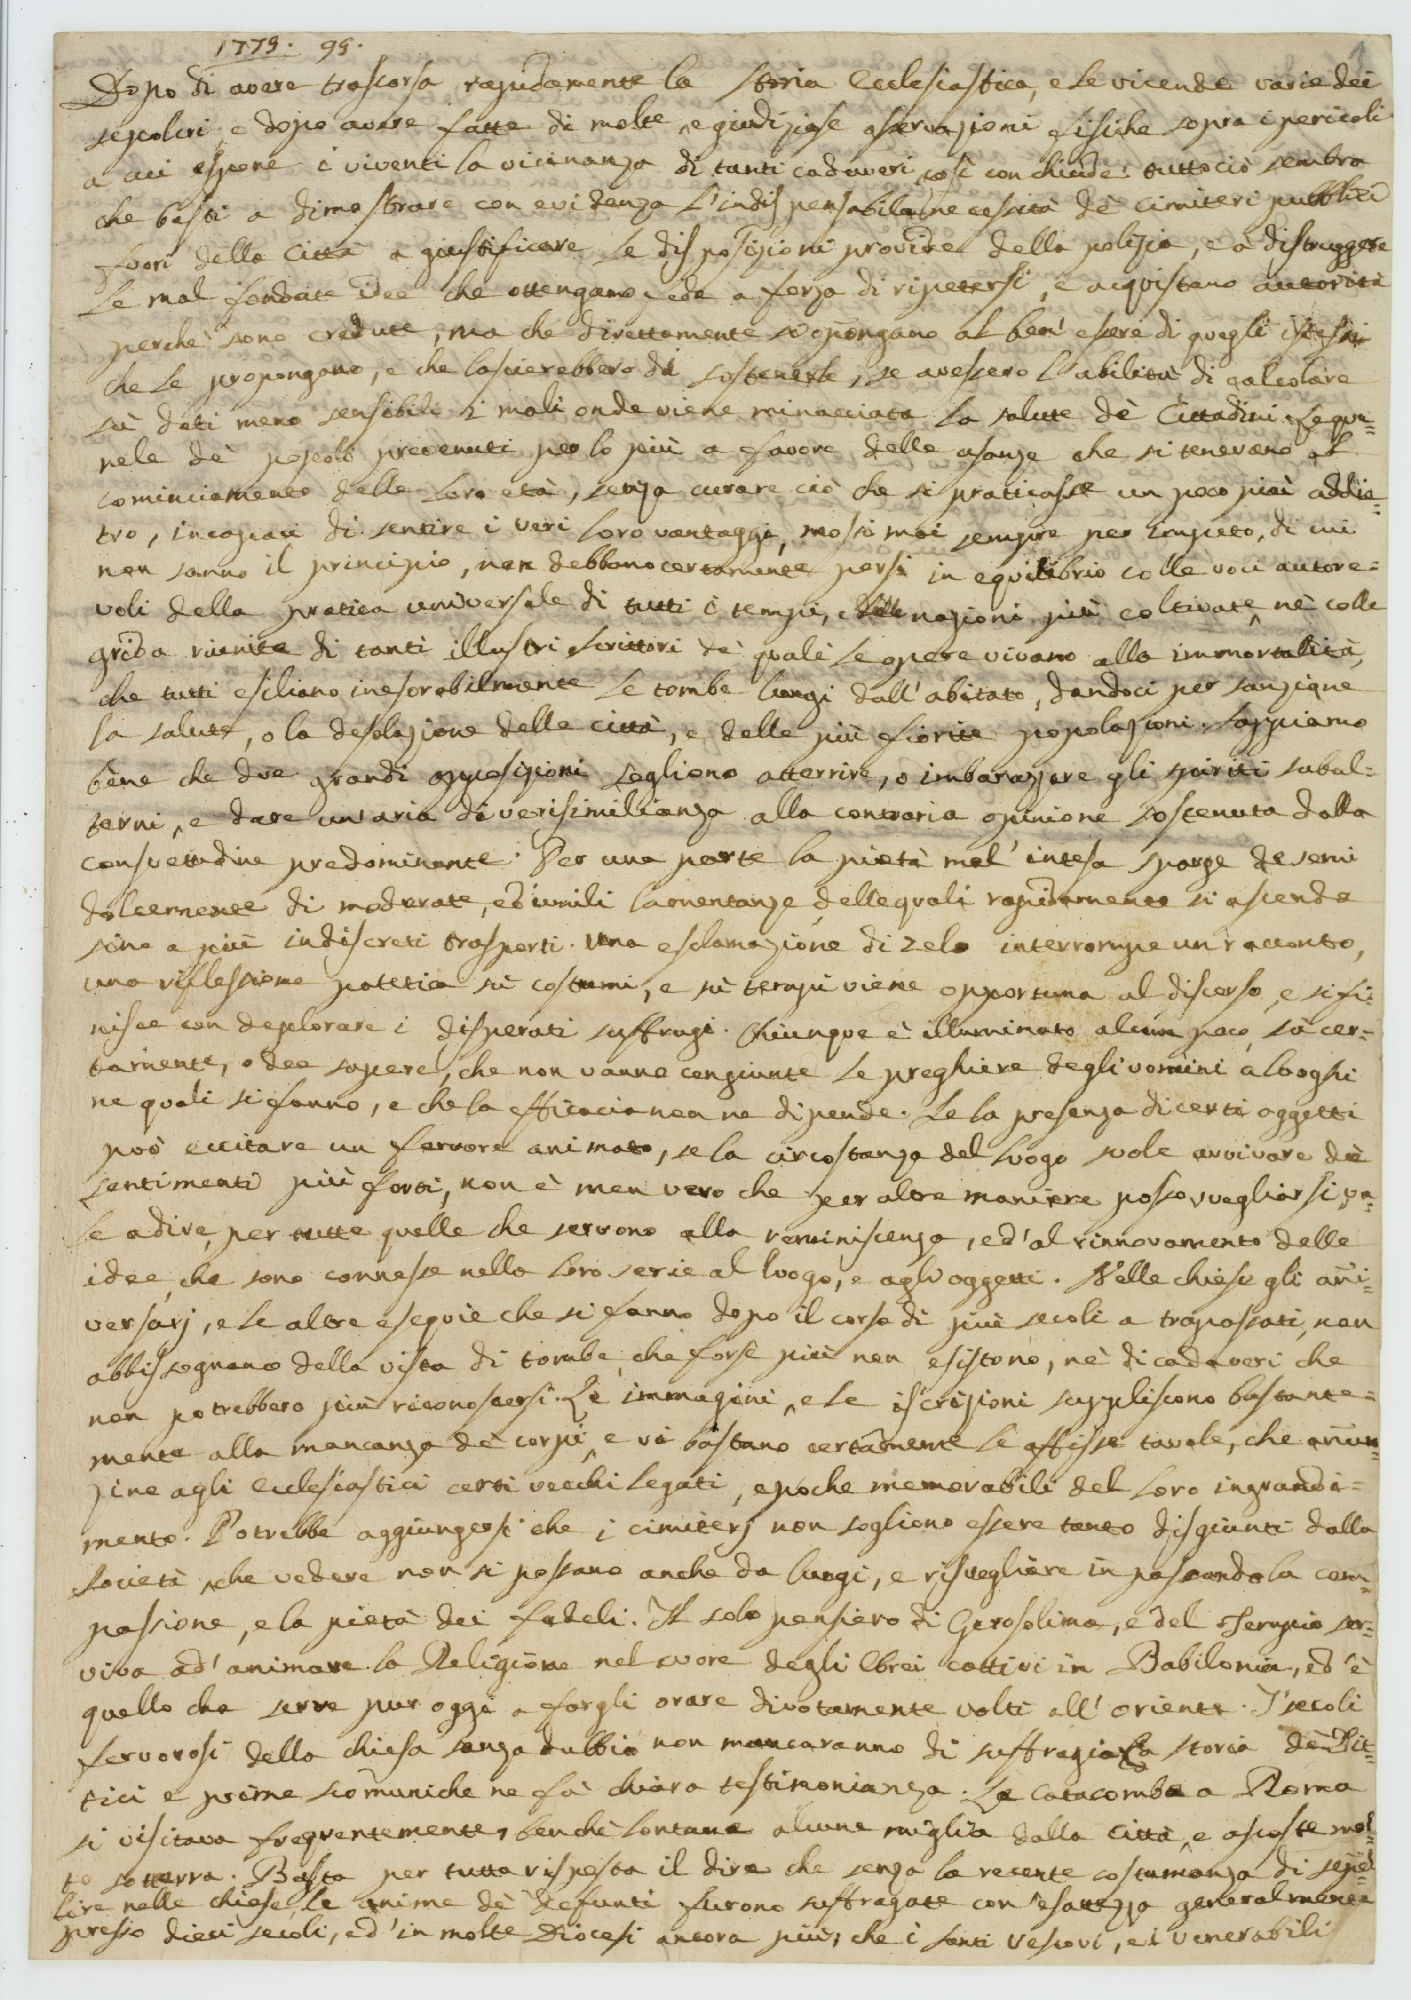 1779. 99.
1
Dopo di avere trascorsa rapidamente la storia Ecclesiastica, e le vicende varie dei
sepolcri, e dopo avere fatte di molte, e giudiziose osservazioni fisiche sopra i pericoli
a cui espone i viventi la vicinanza di tanti cadaveri, così conchiude: tuttociò sembra
che basti a dimostrare con evidenza l'indispensabile necessità dè cimiteri pubblici
fuori della Città a giustificare le disposizioni provide della polizia, e a distruggere
le mal fondate idee che ottengano fede a forza di ripetersi, e acquistano autorità
perchè sono credute, ma che direttamente si oppongano al ben' essere di quegli istessi
che le propongano, e che lascierebbero di sostenerle, se avessero l'abilità di calcolare
sù dati meno sensibili i mali onde viene minacciata la salute dè Cittadini. Le que=
rele dè popoli prevenuti per lo più a favore delle usanze che si tenevano al
cominciamento delle loro età, senza curare ciò che si praticasse un poco più addie=
tro, incapaci di sentire i veri loro vantaggi, mossi mai sempre per impeto, di cui
non sanno il principio, non debbono certamente porsi in equilibrio colle voci autore=
voli della pratica universale di tutti i tempi, delle nazioni più coltivate, nè colle
grida riunite di tanti illustri scrittori dè quali le opere vivano alla immortalità,
che tutti esiliano inesorabilmente le tombe lungi dall'abitato, dandoci per sanzione
la salute, o la desolazione delle città, e delle più fiorite popolazioni. Sappiamo
bene che due grandi opposizioni sogliono atterrire, o imbarazzare gli spiriti subal=
terni, e dare un'aria di verisimilianza alla contraria opinione sostenuta dalla
consuetudine predominante. Per una parte la pietà mal' intesa sparge de semi
dolcemente di moderate, ed umili lamentanze, dalle quali rapidamente si ascende
sino a più indiscreti trasporti. Una esclamazione di zelo interrompe un racconto,
una riflessione patetica sù costumi, e sù tempi viene opportuna al discorso, e si fi=
nisce con deplorare i disperati suffragi. Chiunque è illuminato alcun poco, sà cer=
tamente, o dee sapere, che non vanno congiunte le preghiere degli uomini a luoghi
ne quali si fanno, e che la efficacia non ne dipende. Se la presenza di certi oggetti
può eccitare un fervore animato, se la circostanza del luogo suole avvivare dè
sentimenti più forti, non è men vero che per altre maniere posso svegliarsi, va=
le a dire, per tutte quelle che servono alla reminiscenza, ed' al rinnovamento delle
idee, che sono connesse nella loro serie al luogo, e agli oggetti. Nelle chiese gli ani=
versarj, e le altre esequie che si fanno dopo il corso di più secoli a trapassati, non
abbisognano della vista di tombe, che forse più non esistono, nè di cadaveri che
non potrebbero più riconoscersi. Le immagini, e le iscrizioni suppliscono bastante=
mente alla mancanza dè corpi, e vi bastano certamente le affisse tavole, che anun=
zino agli Ecclesiastici certi vecchi legati, epoche memorabili del loro ingrandi=
mento. Potrebbe aggiungersi che i cimiterj non sogliono essere tanto disgiunti dalla
società, che vedere non si possano anche da lungi, e risvegliare in passando la com=
passione, e la pietà dei fedeli. Il solo pensiero di Gerosolima, e del Tempio ser=
viva ad' animare la Religione nel cuore degli Ebrei cattivi in Babilonia, ed' è
quello che serve pur oggi a fargli orare divotamente volti all' oriente. I secoli
fervorosi della chiesa senza dubbio non mancaranno di suffragio. La storia dè Dit=
tici e prime scomuniche ne fà chiara testimonianza. Le catacombe a Roma
si visitava frequentemente, benchè lontane alcune miglia dalla Città, e ascoste mol=
to sotterra. Basta per tutta risposta il dire che senza la recente costumanza di sepel=
lire nelle chiese, le anime dè defunti furono suffragate con esattezza generalmente
presso dieci secoli, ed' in molte Diocesi ancora più, che i santi Vescovi, e i venerabili